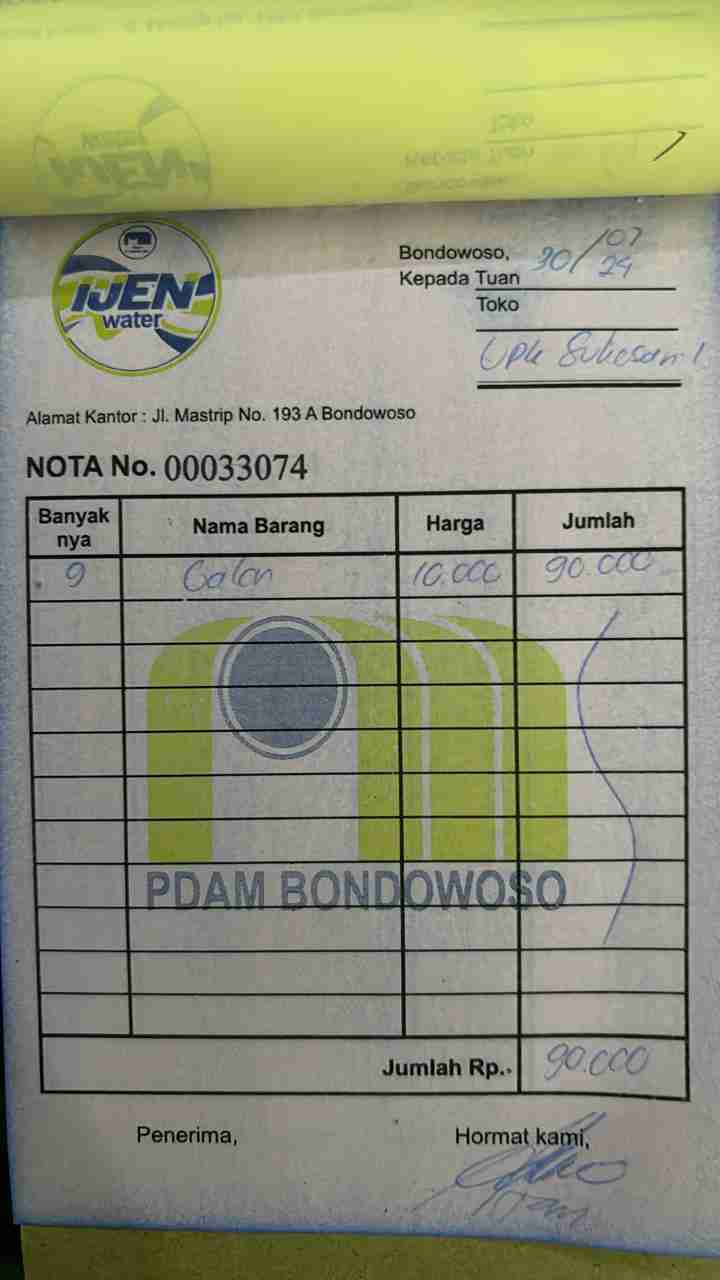 IJEN
water
Bondowoso, 30/07
24
Kepada Tuan
Toko
Upk Sukosari
Alamat Kantor : Jl. Mastrip No. 193 A Bondowoso
NOTA No. 00033074
Banyak nya Nama Barang Harga Jumlah
9 Galon 10.000 90.000
PDAM BONDOWOSO
Jumlah Rp.. 90.000
Penerima, Hormat kami,